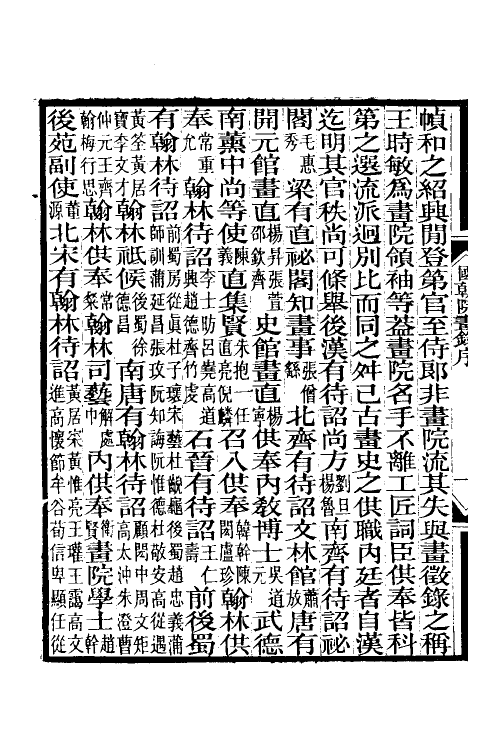 幀和之紹興閒登第官至侍郎非畫院流其失與畫徵錄之稱
王時敏爲畫院領袖等葢畫院名手不離工匠詞臣供奉皆科
第之選流派迥別比而同之舛已古畫史之供職內廷者自漢
迄明其官秩尚可條舉後漢有待詔尚方劉旦楊魯南齊有待詔祕
閣毛惠秀梁有直祕閣知畫事張僧繇北齊有待詔文林館蕭放唐有
開元館畫直楊昇張萱邵欽齊史館畫直楊寧供奉內敎博士吳道元武德
南薰中尚等使陳義直集賢朱抱一任直亮倪召入供奉韓幹陳閎盧珍翰林供
奉常重允翰林待詔李士昉呂嶤高道興趙德齊竹虔石晉有待詔王仁壽前後蜀
有翰林待詔前蜀房從眞杜子瓌宋藝杜齯龜後蜀趙忠義蒲師訓蒲延昌張玫阮知誨阮惟德杜敬安高從遇
黃筌黃居寶李文才翰林祗候後蜀徐德昌南唐有翰林待詔顧閎中周文矩高太沖朱澄曹
仲元王齊翰梅行思翰林供奉常粲翰林司藝解處中內供奉衛賢畫院學士趙幹
後苑副使董源北宋有翰林待詔黃居寀黃惟亮王瓘王靄高文進高懷節牟谷荀信卑顯任從
國朝院畫錄序
一